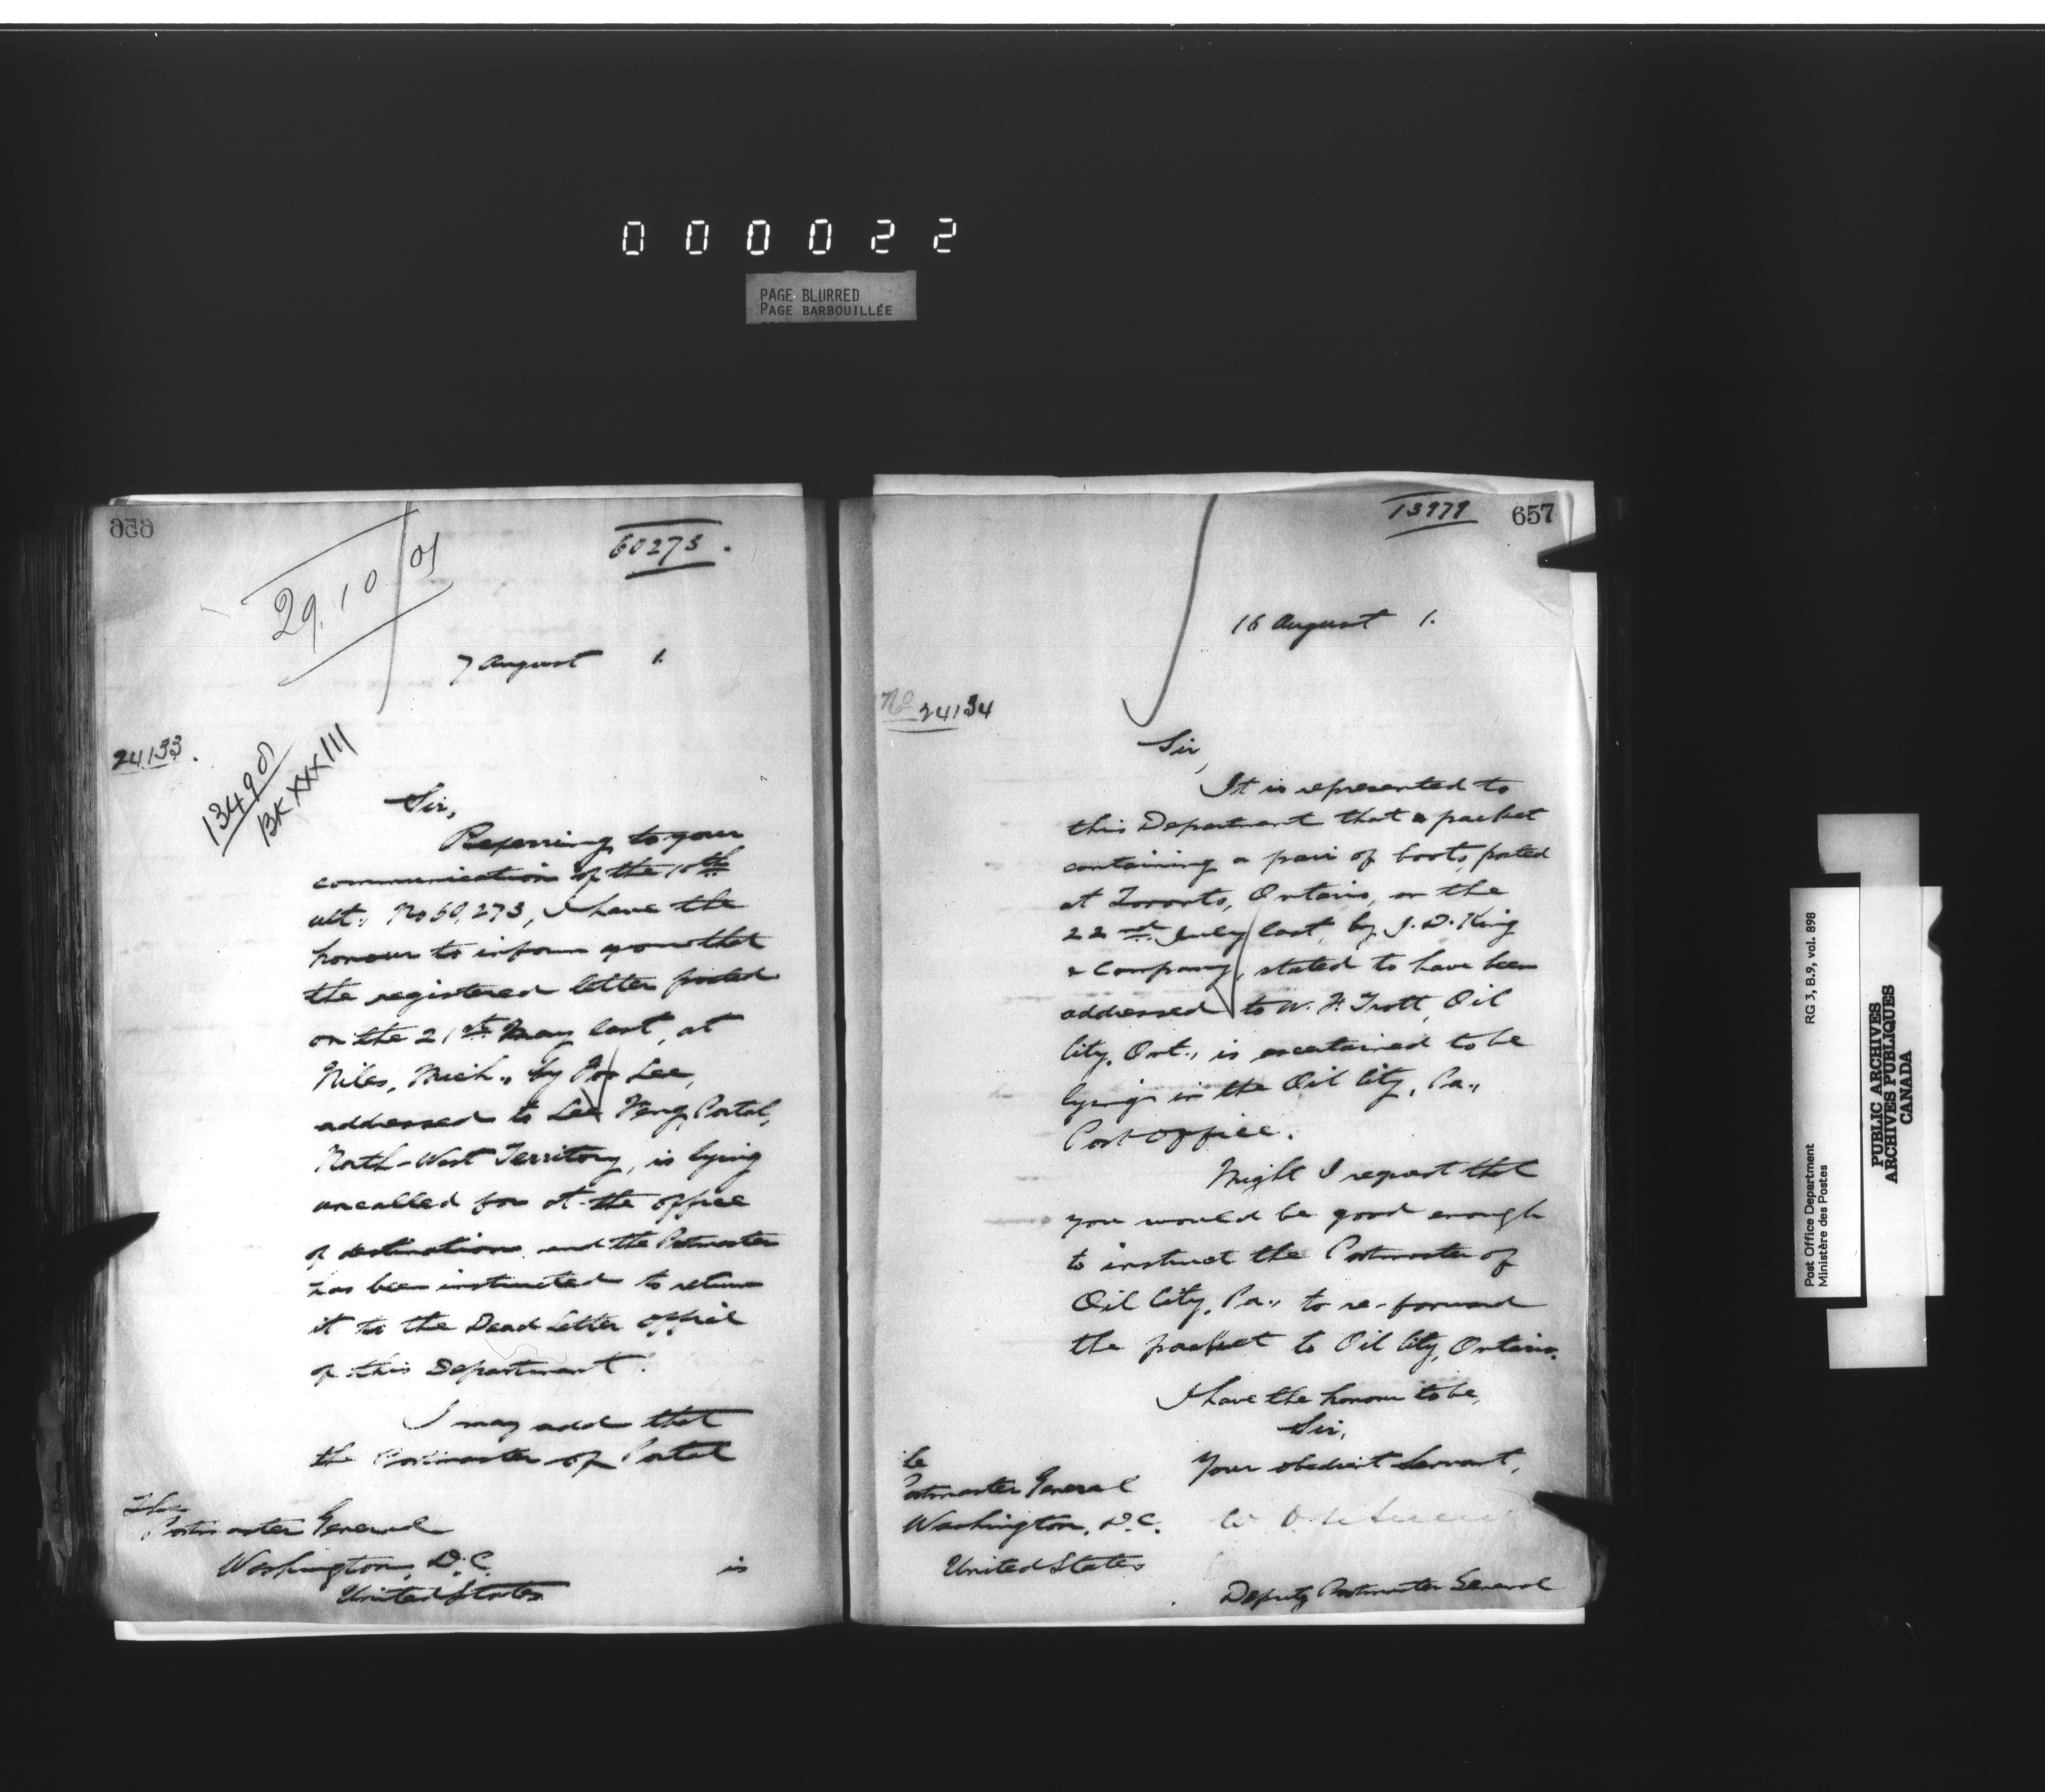 000022
PAGE BLURRED
PAGE BARBOUILLÉE
656
60273.
29.10 01
7 August 1.
24133.
13490
BK XXXIII
Sir,
Referring to your
communication of the 10th
ult., No 60,273, I have the
honour to inform you that
the registered letter posted
on the 21st May last, at
Niles, Mich., by Lee,
addressed to Lee Portal,
North-West Territory, is lying
uncalled for at the office
of destination and the Postmaster
has been instructed to return
it to the Dead Letter Office
of this Department.
I may add that
the Postmaster of Portal
The
Postmaster General
Washington, D.C.
United States
is
13979
657
16 August 1.
No 24134
Sir,
It is represented to
this Department that a packet
containing a pair of boots, posted
at Toronto, Ontario, on the
22nd July last, by J. D. King
& Company, stated to have been
addressed to W. H. Trott, Oil
City, Ont., is ascertained to be
lying in the Oil City, Pa.,
Post Office.
Might I request that
you would be good enough
to instruct the Postmaster of
Oil City, Pa., to re-forward
the packet to Oil City, Ontario.
I have the honour to be,
Sir,
Your obedient Servant,
Postmaster General
Washington, D.C.
United States
Deputy Postmaster General
Post Office Department
Ministère des Postes
RG 3, B.9, vol. 898
PUBLIC ARCHIVES
ARCHIVES PUBLIQUES
CANADA